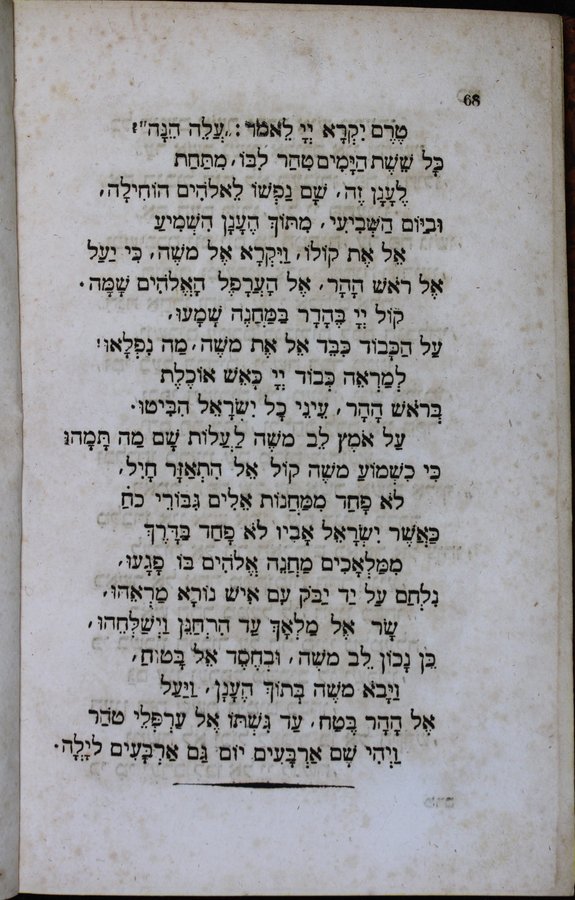 68
טֶרֶם יִקְרָא יְיָ לֵאמֹר: „עֲלֵה הֵנָּה”!
כָּל שֵׁשֶׁת הַיָּמִים טִהַר לִבּוֹ, מִתַּחַת
לֶעָנָן זֶה, שָׁם נַפְשׁוֹ לֵאלֹהִים הוֹחִילָה,
וּבַיּוֹם הַשְּׁבִיעִי, מִתּוֹךְ הֶעָנָן הִשְׁמִיעַ
אֵל אֶת קוֹלוֹ, וַיִּקְרָא אֶל משֶׁה, כִּי יַעַל
אֶל ראשׁ הָהָר, אֶל הָעֲרָפֶל הָאֱלֹהִים שָׁמָּה.
קוֹל יְיָ בֶּהָדָר בַּמַּחֲנֶה שָׁמָעוּ,
עַל הַכָּבוֹד כִּבֵּד אֵל אֶת משֶׁה, מַה נִפְלָאוּ!
לְמַרְאֵה כְּבוֹד יְיָ כְּאֵשׁ אוֹכֶלֶת
בְּראשׁ הָהָר, עֵינֵי כָל יִשְׂרָאֵל הִבִּיטוּ.
עַל אֹמֶץ לֵב משֶׁה לַעֲלוֹת שָׁם מַה תָּמָהוּ
כִּי כִשְׁמוֹעַ משֶׁה קוֹל אֵל הִתְאַזָּר חָיִל,
לֹא פָחַד מִמַּחֲנוֹת אֵלִים גִּבּוֹרֵי כֹחַ
כַּאֲשֶׁר יִשְׂרָאֵל אָבִיו לֹא פָחַד בַּדָּרֶךְ
מִמַּלְאָכִים מַחֲנֵה אֱלֹהִים בּוֹ פָגָעוּ,
נִלְחַם עַל יַד יַבֹּק עִם אִישׁ נוֹרָא מַרְאֵהוּ,
שָׂר אֶל מַלְאָךְ עַד הִתְחַנֵּן וַיְשַׁלְּחֵהוּ,
כֵּן נָכוֹן לֵב משֶׁה, וּבְחֶסֶד אֵל בָּטוּחַ,
וַיָּבֹא משֶׁה בְּתוֹךְ הֶעָנָן, וַיַּעַל
אֶל הָהָר בֶּטַח, עַד גִּשְׁתּוֹ אֶל עַרְפְלֵי טֹהַר
וַיְהִי שָׁם אַרְבָּעִים יוֹם גַּם אַרְבָּעִים לָיְלָה.